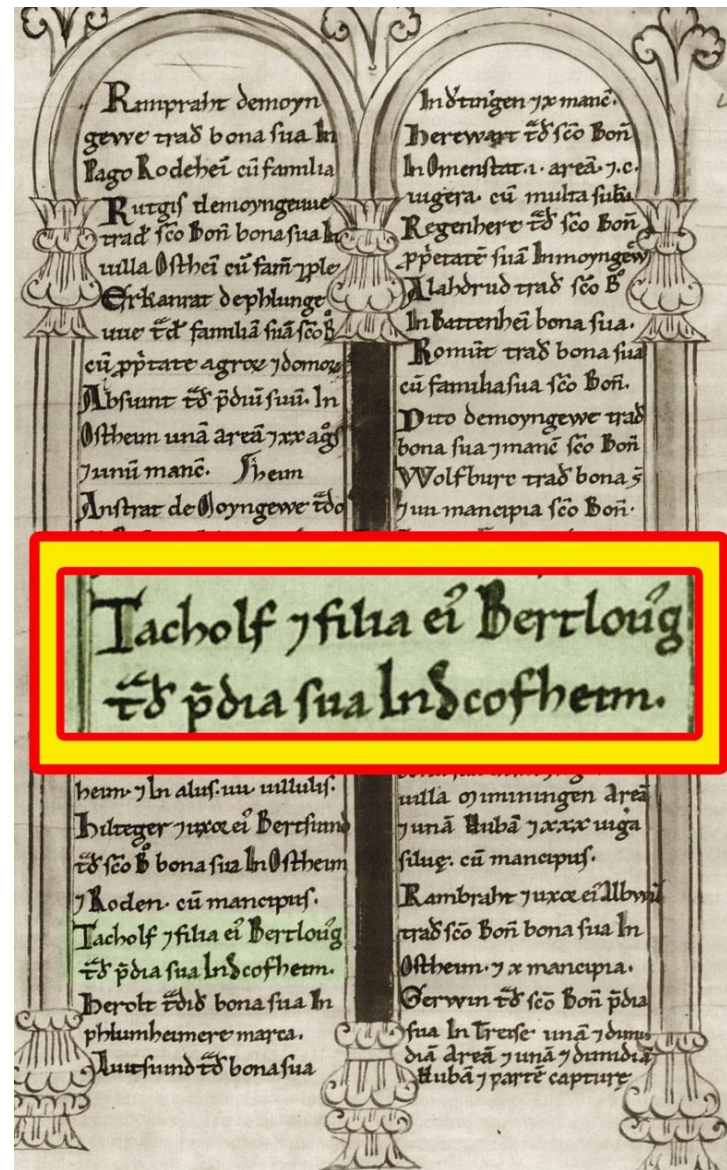 Rampraht demoyn
gewe trad bona sua In
Pago Rodehei cū familia
Rutgis demoyngeuue
trad sco Boñ bona sua In
uilla Osthei cū fam̄ ⁊ple
Erkanrat dephlunge
uue t̄d familiā suā sco B
cū ppt̄ate agroꝝ ⁊domoꝝ
Absunt t̄d p̄diū suū. In
Ostheim unā areā ⁊xx agͦs
⁊unū manc̄. sheim
Anstrat de Moyngewe t̄do
Tacholf ⁊filia ei᾽ Bertlouᵍ
t̄d p̄dia sua Indcofheim.
heim ⁊In alus. uu uillulis.
Hilteger ⁊uxoꝛ ei᾽ Bertsuind
t̄d sco B bona sua In Ostheim
⁊Roden. cū mancipus.
Tacholf ⁊filia ei᾽ Bertlouᵍ
t̄d p̄dia sua Indcofheim.
Herolt t̄did bona sua In
phlumheimere marca.
t̄d bona sua
Indtingen ⁊x manc̄.
Herewart t̄d sco Boñ
In Omenstat. ı. areā. ⁊.c.
iugera. cū multa
Regenhere t̄d sco Boñ
pp̄etatē suā Inmoyngew
Alahdrud trad sco B
In Battenhei bona sua.
Romūt trad bona sua
cū familia sua sco Boñ.
Dito demoyngewe trad
bona sua ⁊manc̄ sco Boñ
Wolfburc trad bona s̄
⁊uu mancipia sco Boñ.
uilla Miminingen Areā
⁊unā Hubā ⁊xxx iuga
siluę. cū mancipus.
Rambraht ⁊uxoꝛ ei᾽ Albwi
trad sco Boñ bona sua In
Ostheim. ⁊ x mancipia.
Gerwin t̄d sco Boñ p̄dia
sua In Treise unā ⁊dimi
diā Areā ⁊unā ⁊dimidiā
Hubā ⁊partē capturę